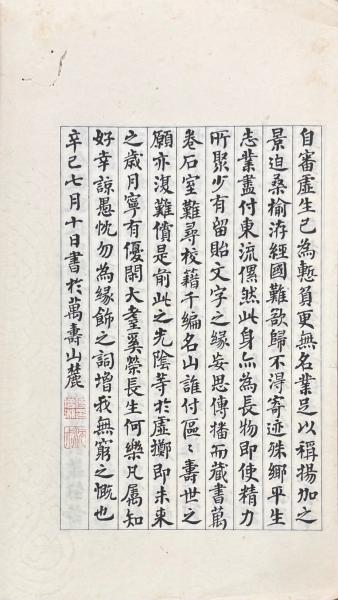 自審虛生已為慙負更無名業足以稱揚加之
景迫桑榆洊經國難欲歸不得寄迹殊鄉平生
志業盡付東流儽然此身亦為長物即使精力
所聚少有留貽文字之緣妄思傳播而藏書萬
卷石室難尋校籍千編名山誰付區〻壽世之
願亦復難償是前此之光陰等於虛擲即未來
之歲月寧有優閒大耋奚榮長生何樂凡屬知
好幸諒愚忱勿為緣飾之詞增我無窮之慨也
辛巳七月十日書於萬壽山麓